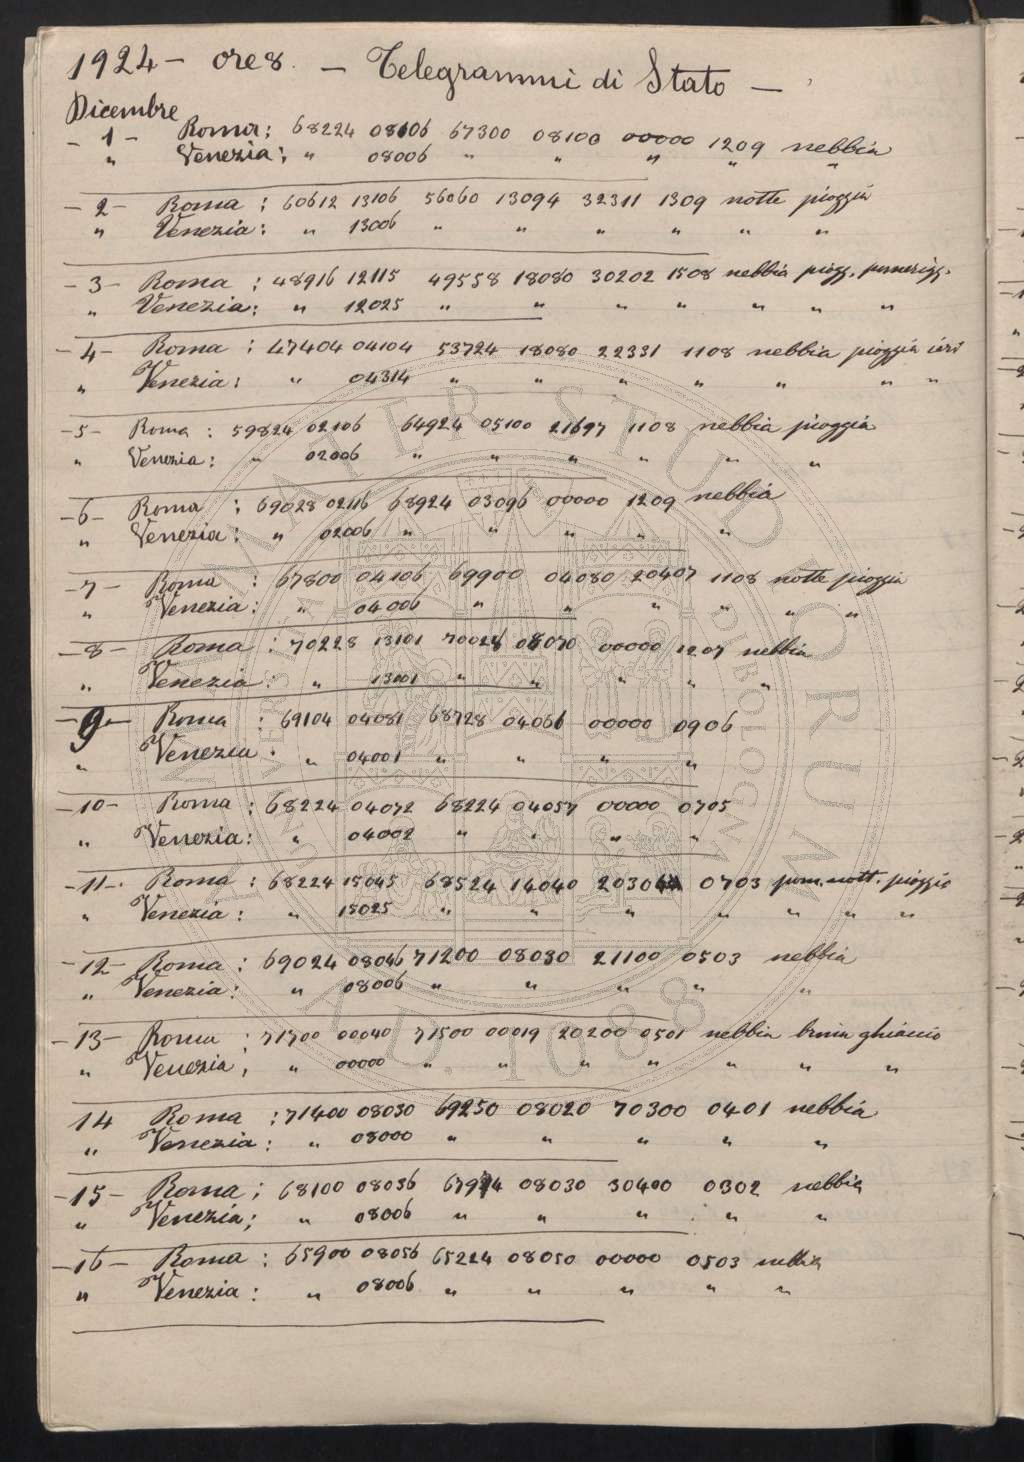 1924 - ore 8. - Telegrammi di Stato -
Dicembre
- 1 - Roma: 68224 08106 67300 08100 00000 1209 nebbia
" Venezia: " 08006 " " " " "
- 2 - Roma: 60612 13106 56060 13094 32311 1309 notte pioggia
" Venezia: " 13006 " " " " " "
- 3 - Roma: 48916 12115 49558 18080 30202 1508 nebbia piogg. pomerigg.
" Venezia: " 12025 " " " " " " "
- 4 - Roma: 47404 04104 53724 18080 22331 1108 nebbia pioggia ieri
" Venezia: " 04314 " " " " " " "
- 5 - Roma: 59824 02106 64924 05100 21697 1108 nebbia pioggia
" Venezia: " 02006 " " " " " "
- 6 - Roma: 69028 02116 68924 03096 00000 1209 nebbia
" Venezia: " 02006 " " " " "
- 7 - Roma: 67800 04106 69900 04080 20407 1108 notte pioggia
" Venezia: " 04006 " " " " " "
- 8 - Roma: 70228 13101 70024 08070 00000 1207 nebbia
" Venezia: " 13001 " " " " "
- 9 - Roma: 69104 04081 68728 04066 00000 0906
" Venezia: " 04001 " " " "
- 10 - Roma: 68224 04072 68224 04057 00000 0705
" Venezia: " 04002 " " " "
- 11 - Roma: 68224 15045 68524 14040 0703 pom. nott. pioggia
" Venezia: " 15025 " " " " " " "
- 12 - Roma: 69024 08046 71200 08030 21100 0503 nebbia
" Venezia: " 08006 " " " " "
- 13 - Roma: 71700 00040 71500 00019 20200 0501 nebbia brina ghiaccio
" Venezia, " 00000 " " " " " " "
14 Roma: 71400 08030 69250 08020 70300 0401 nebbia
" Venezia: " 08000 " " " " "
- 15 - Roma; 68100 08036 08030 30400 0302 nebbia
" Venezia; " 08006 " " " " "
- 16 - Roma: 65900 08056 65224 08050 00000 0503 nebbia
" Venezia: " 08006 " " " " "
ALMA MATER STUDIORUM
A.D. 1088